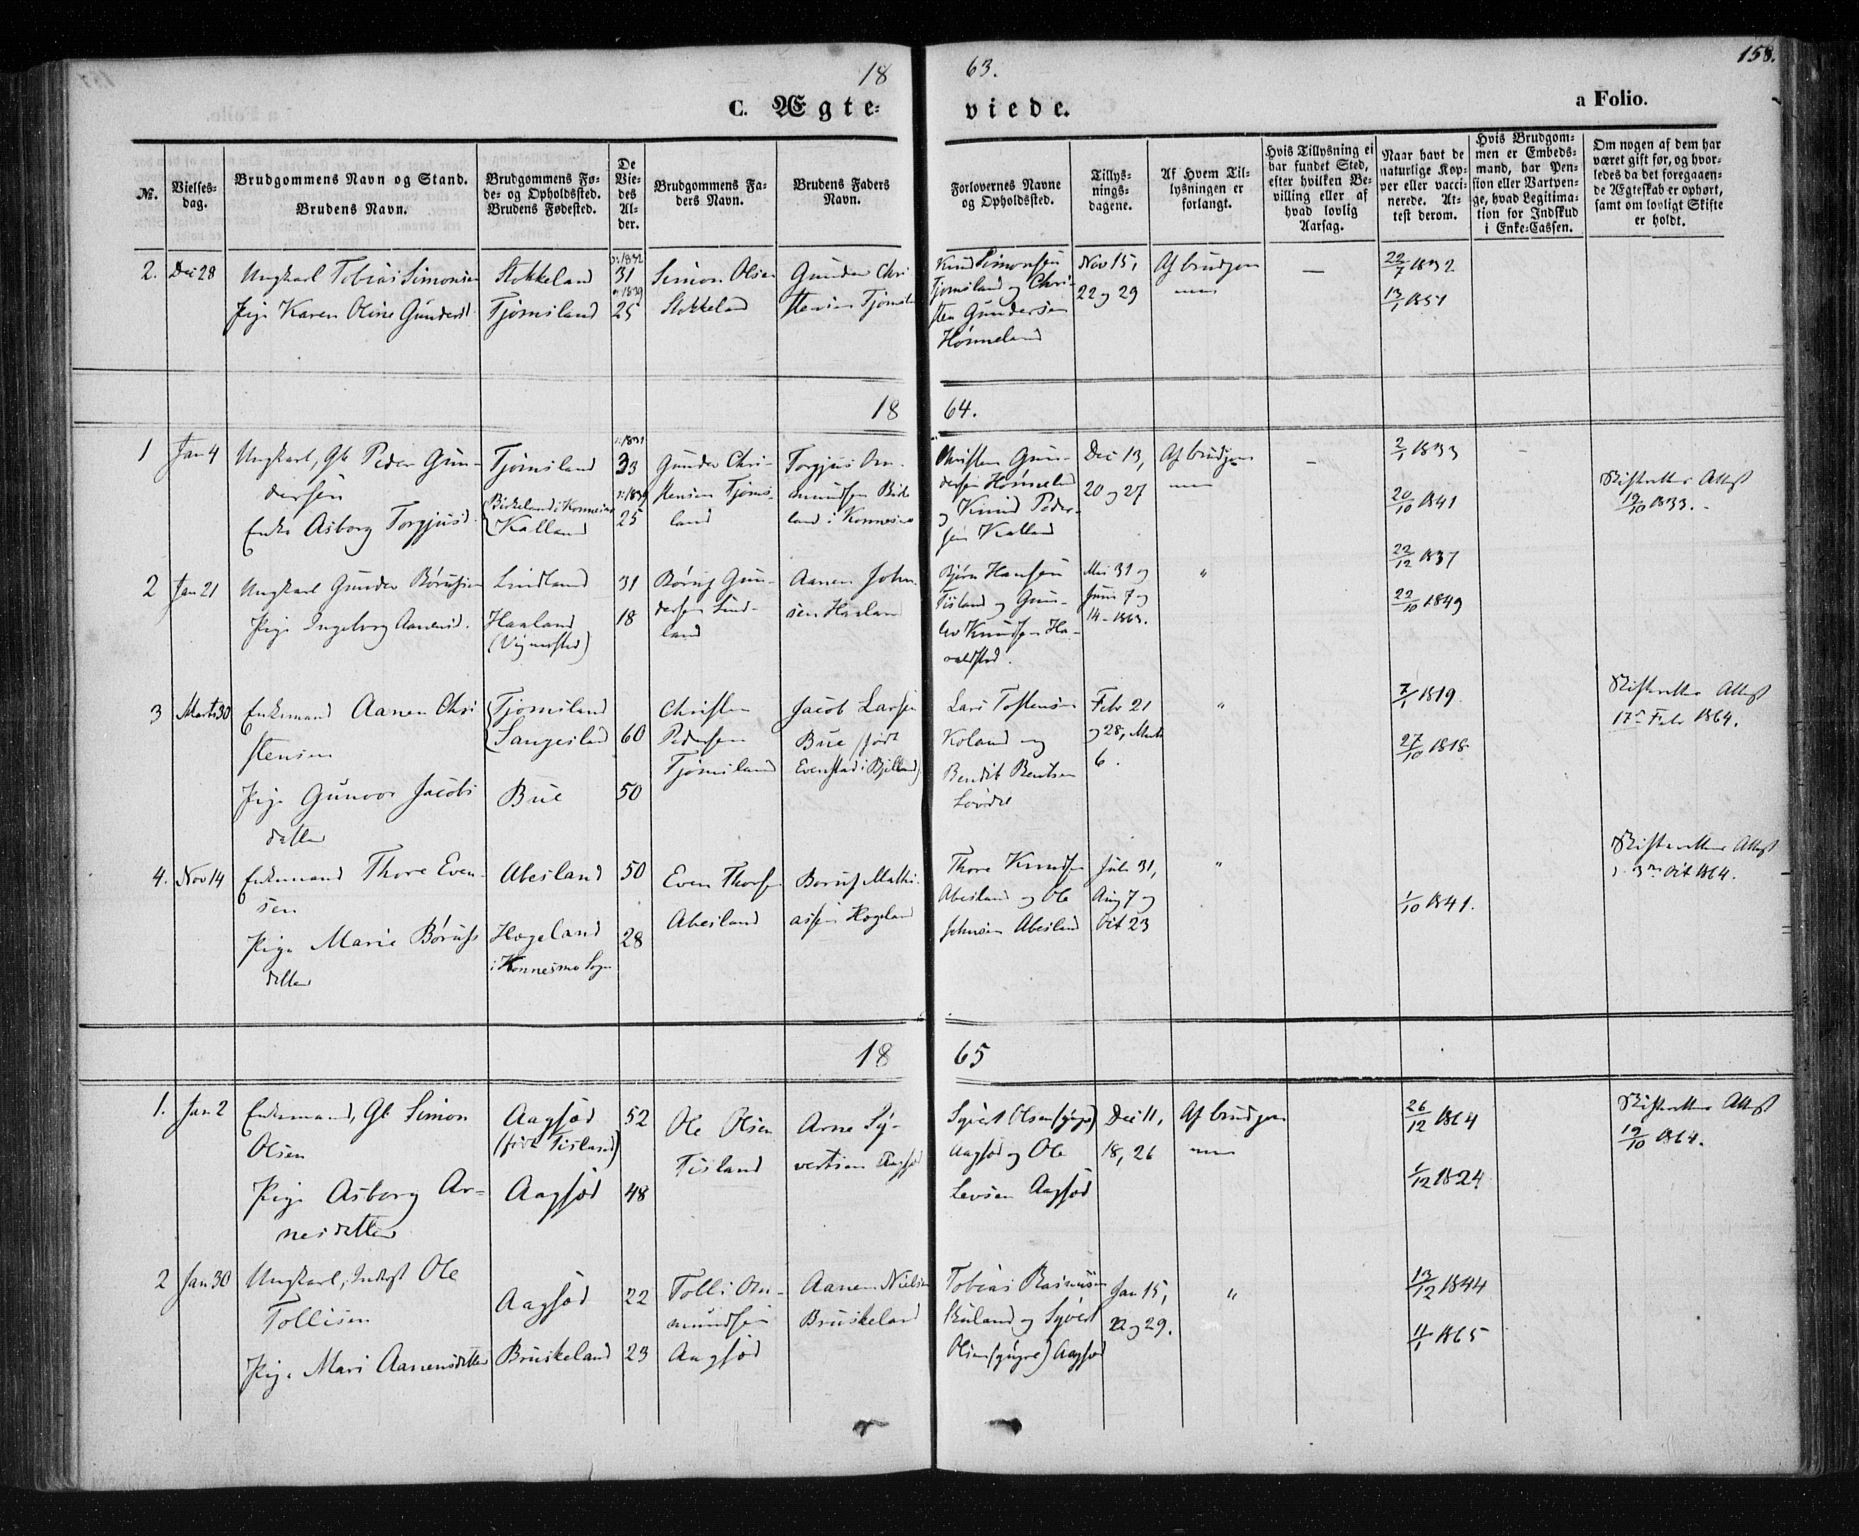 158.
18 63.
C. Ægte- viede. a Folio.
№.
Vielses-
dag.
Brudgommens Navn og Stand.
Brudens Navn.
Brudgommens Fø-
de- og Opholdssted.
Brudens Fødested.
De
Vie-
des
Al-
der.
Brudgommens Fa-
ders Navn.
Brudens Faders
Navn.
Forlovernes Navne
og Opholdssted.
Tillys-
nings-
dagene.
Af Hvem Til-
lysningen er
forlangt.
Hvis Tillysning ei
har fundet Sted,
efter hvilken Be-
villing eller af
hvad lovlig
Aarsag.
Naar havt de
naturlige Kop-
per eller vacci-
nerede. At-
test derom.
Hvis Brudgom-
men er Embeds-
mand, har Pen-
sion eller Vartpen-
ge, hvad Legitima-
tion for Indskud
i Enke-Cassen.
Om nogen af dem har
været gift før, og hvor-
ledes da det foregaaen-
de Ægteskab er ophørt,
samt om lovligt Skifte
er holdt.
2. Dec 28
Ungkarl Tobias Simonsen
Pige Karen Oline Gundersd.
Stokkeland
Tjomsland
31
25
Simon Olsen
Stokkeland
Gunder Chri-
stensen Tjomsl.
Knud Simonsen
Tjomsland og Chri-
sten Gundersen
Hønneland
Nov 15,
22 og 29
Af brudgom-
men
—
22/7 1832
13/1 1851
18 64.
1 Jan 4
Ungkarl, Gb Peder Gun-
dersen
Enke Asborg Torgjusd.
Tjomsland
Birkeland i Konnesmo
Kalland
33
25
Gunder Chri-
stensen Tjoms-
land
Torgjus Om-
mundsen Birke-
land i Konnesmo
Christen Gun-
dersen Hønneland
og Knud Peder-
sen Kalland
Dec 13,
20 og 27
Af brudgom-
men
—
2/1 1833
20/10 1841
Skifteretten Attest
19/10 1833.
2 Jan 21
Ungkarl Gunder Børufsen
Pige Ingeborg Aanensd.
Lindland
Haaland
(Vigmostad)
31
18
Børuf Gun-
dersen Lind-
land
Aanen John-
sen Haaland
Bjørn Hansen
Tisland og Gun-
lev Knudsen Ha-
valdsted.
Mai 31 og
Juni 7 og
14 - 1863.
"
22/12 1837
22/10 1849
3 Marts 30
Enkemand Aanen Chri-
stensen
Pige Gunvor Jacobs
datter
Tjomsland
Sangesland
Bue
60
50
Christen
Pedersen
Tjomsland
Jacob Larsen
Bue (født
Evenstad i Bjelland)
Lars Tostensen
Koland og
Bendit Bentsen
Løvdal
Febr 21
og 28, Marts
6.
"
7/1 1819.
27/10 1818.
Skifteretten Attest
17de Febr 1864.
4. Nov 14
Enkemand Thore Even-
sen
Pige Marie Børufs
datter
Abesland
Hægeland
i Konnesmo Sogn
50
28
Even Thorsen
Abesland
Boruf Mathi-
assen Hægeland
Thore Knudsen
Abesland og Ole
Johnsen Abesland
Juli 31,
Aug 7 og
Oct 23
"
1/10 1841.
Skifteretten Attest
3die Oct 1864.
18 65
1. Jan 2
Enkemand, Gb Simon
Olsen
Pige Asborg Ar-
nesdatter
Aagsød
(født Tisland)
Aagsød
52
48
Ole Olsen
Tisland
Arne Sy-
vertsen Aagsød
Syvert Olsen (yngre)
Aagsød og Ole
Levsen Aagsød
Dec 11,
18, 26
Af brudgom-
men
26/12 1864
1/12 1824
Skifteretten Attest
19/10 1864.
2 Jan 30
Ungkarl, Inderst Ole
Tollisen
Pige Mari Aanensdatter
Aagsød
Bruskeland
22
23
Tolli Om-
mundsen
Aagsød
Aanen Nielsen
Bruskeland
Tobias Rasmusen
Skuland og Syvert
Olsen (yngre) Aagsød
Jan 15,
22 og 29.
"
13/12 1844
4/1 1865